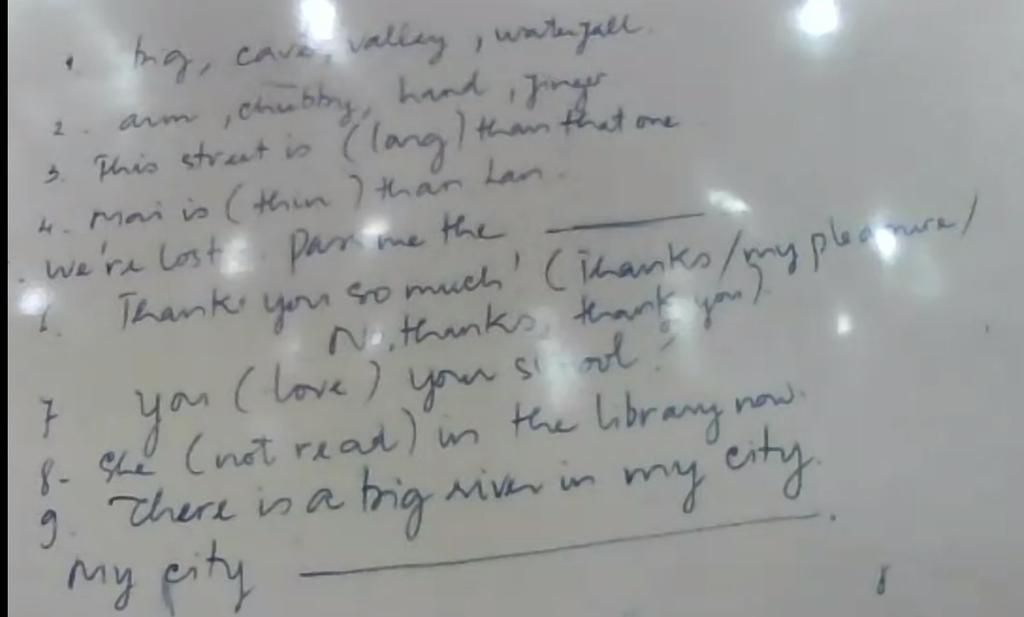 1. big, cave, valley, waterfall.
2. arm, chubby, hand, finger
3. This street is (long) than that one
4. Mai is (thin) than Lan.
. We're lost. Pass me the ________
6. Thank you so much! (Thanks/my pleasure/
No, thanks, thank you).
7 you (love) your school?
8- She (not read) in the library now.
9. There is a big river in my city.
My city ________.